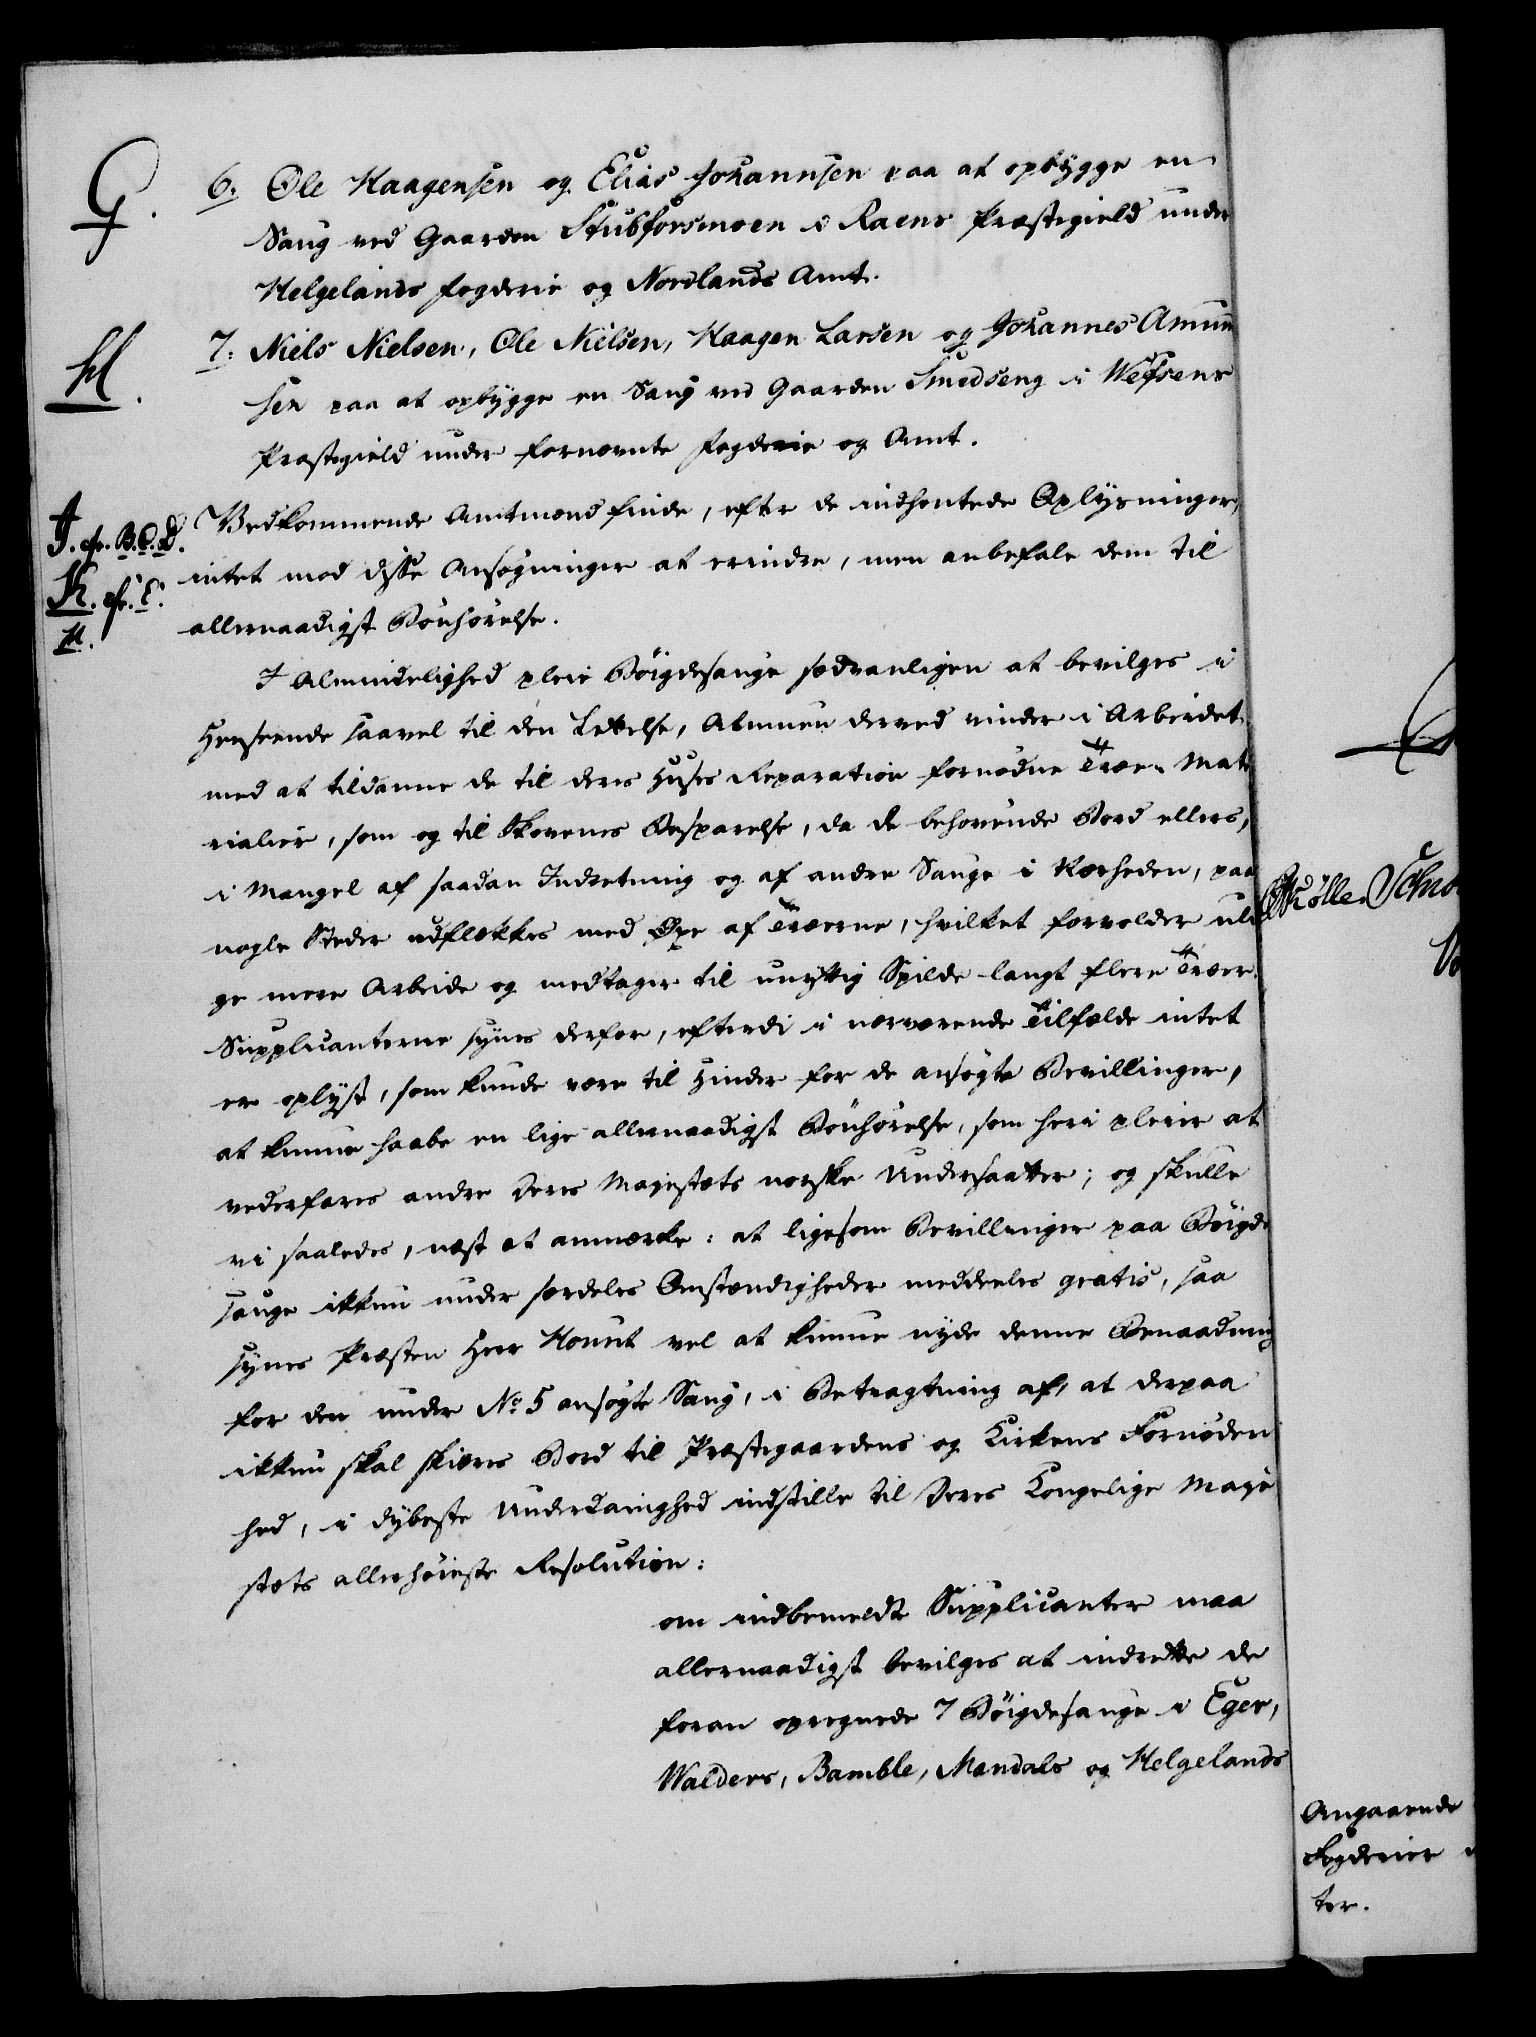 G.
6. Ole Haagensen og Elias Johannsen paa at opbygge en
Saug ved Gaarden Stubforsmoen i Raens Præstegield under
Helgelands Fogderie og Nordlands Amt.
H.
7. Niels Nielsen, Ole Nielsen, Haagen Larsen og Johannes Amun
sen paa at opbygge en Saug ved Gaarden Smedseng i Wefsens
Præstegield under fornævnte Fogderie og Amt.
I. cfr. B.C.D.
K. cfr. E.
M.
Vedkommende Amtmænd finde, efter de indhentede Oplysninger,
intet mod disse Ansøgninger at erindre, men anbefale dem til
allernaadigst Bønhørelse.
I Almindelighed pleie Böigdesauge sædvanligen at bevilges i
Henseende saavel til den Lettelse, Almuen derved vinder i Arbeidet
med at tildanne de til deres Huses Reparation fornødne Træe- Mate
rialier, som og til Skovenes Besparelse, da de behøvende Bord ellers,
i Mangel af saadan Indretning og af andre Sauge i Nærheden, paa
nogle Steder udflekkes med Øxe af Træerne, hvilket forvolder uli
ge mere Arbeide og medtager til unyttig Spilde langt flere Træer.
Supplicanterne synes derfor, efterdi i nærværende Tilfælde intet
er oplyst, som kunde være til Hinder for de ansøgte Bevillinger,
at kunne haabe en lige allernaadigst Bönhørelse, som heri pleier at
vederfares andre Deres Majestæts norske Undersaatter; og skulle
vi saaledes, næst at anmærke: at ligesom Bevillinger paa Böigde
sauge ikkun under særdeles Omstændigheder meddeeles gratis, saa
synes Præsten Herr Hount vel at kunne nyde denne Benaadning
for den under No 5 ansøgte Saug, i Betragtning af, at derpaa
ikkun skal skieres Bord til Præstegaardens og Kirkens Fornøden
hed, i dybeste Underdanighed indstille til Deres Kongelige Maje
stæts allerhöieste Resolution:
om indbemeldte Supplicanter maa
allernaadigst bevilges at indrette de
foran opregnede 7 Böigdesauge i Eger,
Walders, Bamble, Mandals og Helgelands
Angaaende
Fogderier
ter.